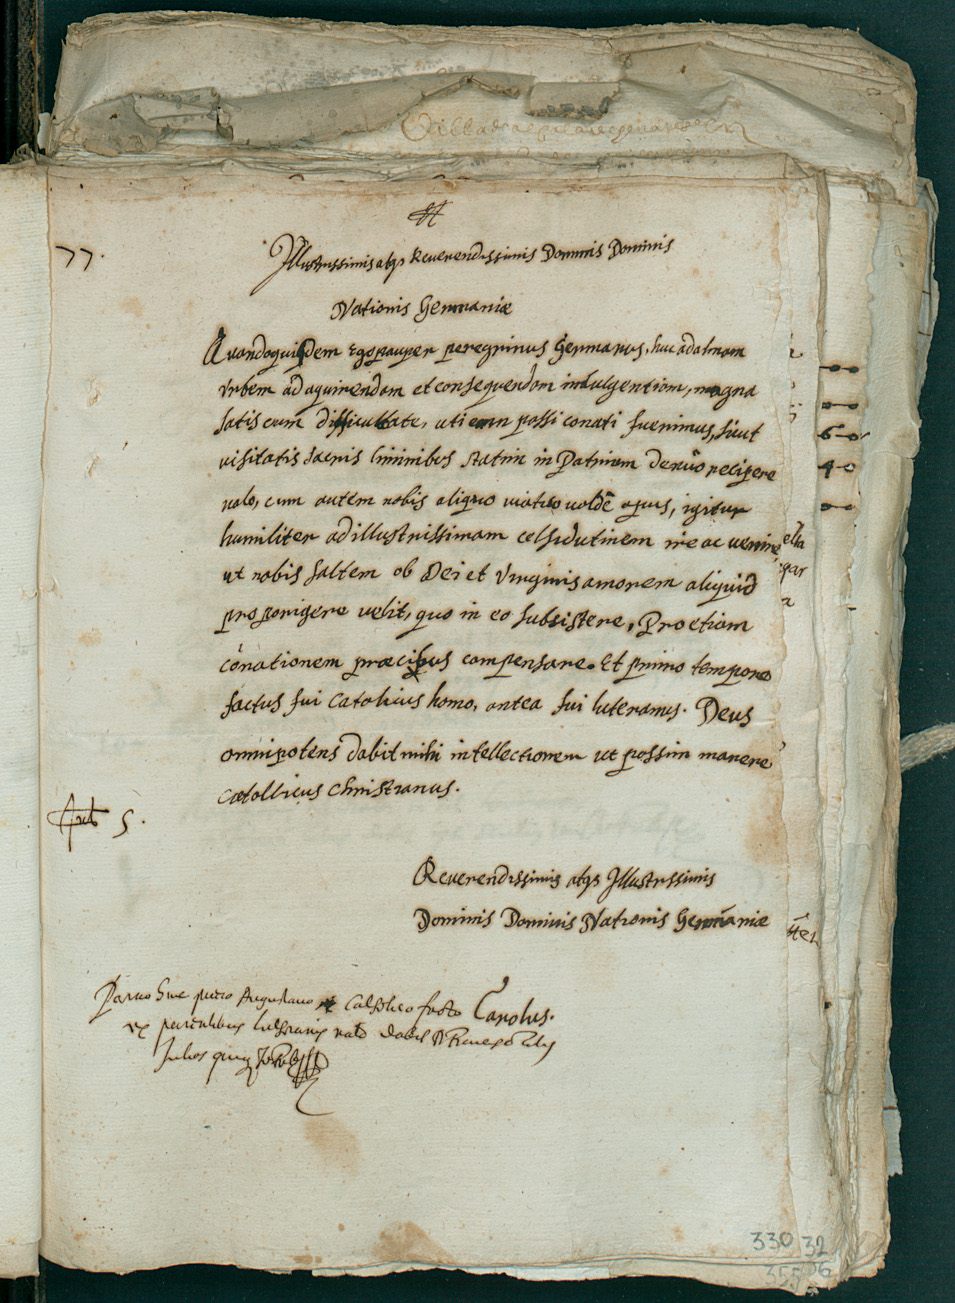 77.
Illustrissimis atqs Reverendissimis Dominis Dominis
Nationis Germaniæ
Quandoquidem Ego pauper peregrinus Germanus, huc ad almam
Vrbem ad aquirendam et consequendam indulgentiam, magna
satis cum difficultate, uti enim possi conati fuerimus, sicut
visitatis sacris liminibus statim in Patriam denuo recipere
volo, cum autem nobis aliquo viatico valdè opus, igitur
humiliter ad illustrissimam celsidutinem ire ac venire,
ut nobis saltem ob Dei et Virginis amorem aliquid
proporigere velit, quo in eo subsistere, Pro etiam
conationem præcibus compensare. Et primo tempore
factus fui Catolicus homo, antea fui luteranus. Deus
omnipotens dabit mihi intellectionem ut possim manere
catollicus Christianus.
5.
Reverendissimis atqs Illustrissimis
Dominis Dominis Nationis Germaniæ
Carolus.
Augustano
ex parentibus
Julios
330 32